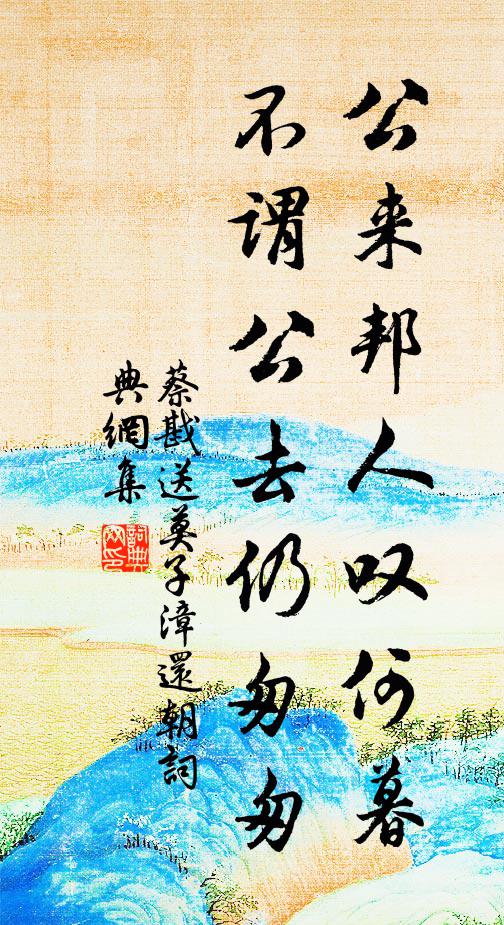 公来邦人叹何暮
不谓公去仍匆匆
蔡戡送莫子漳還朝詞
典網集
詞典